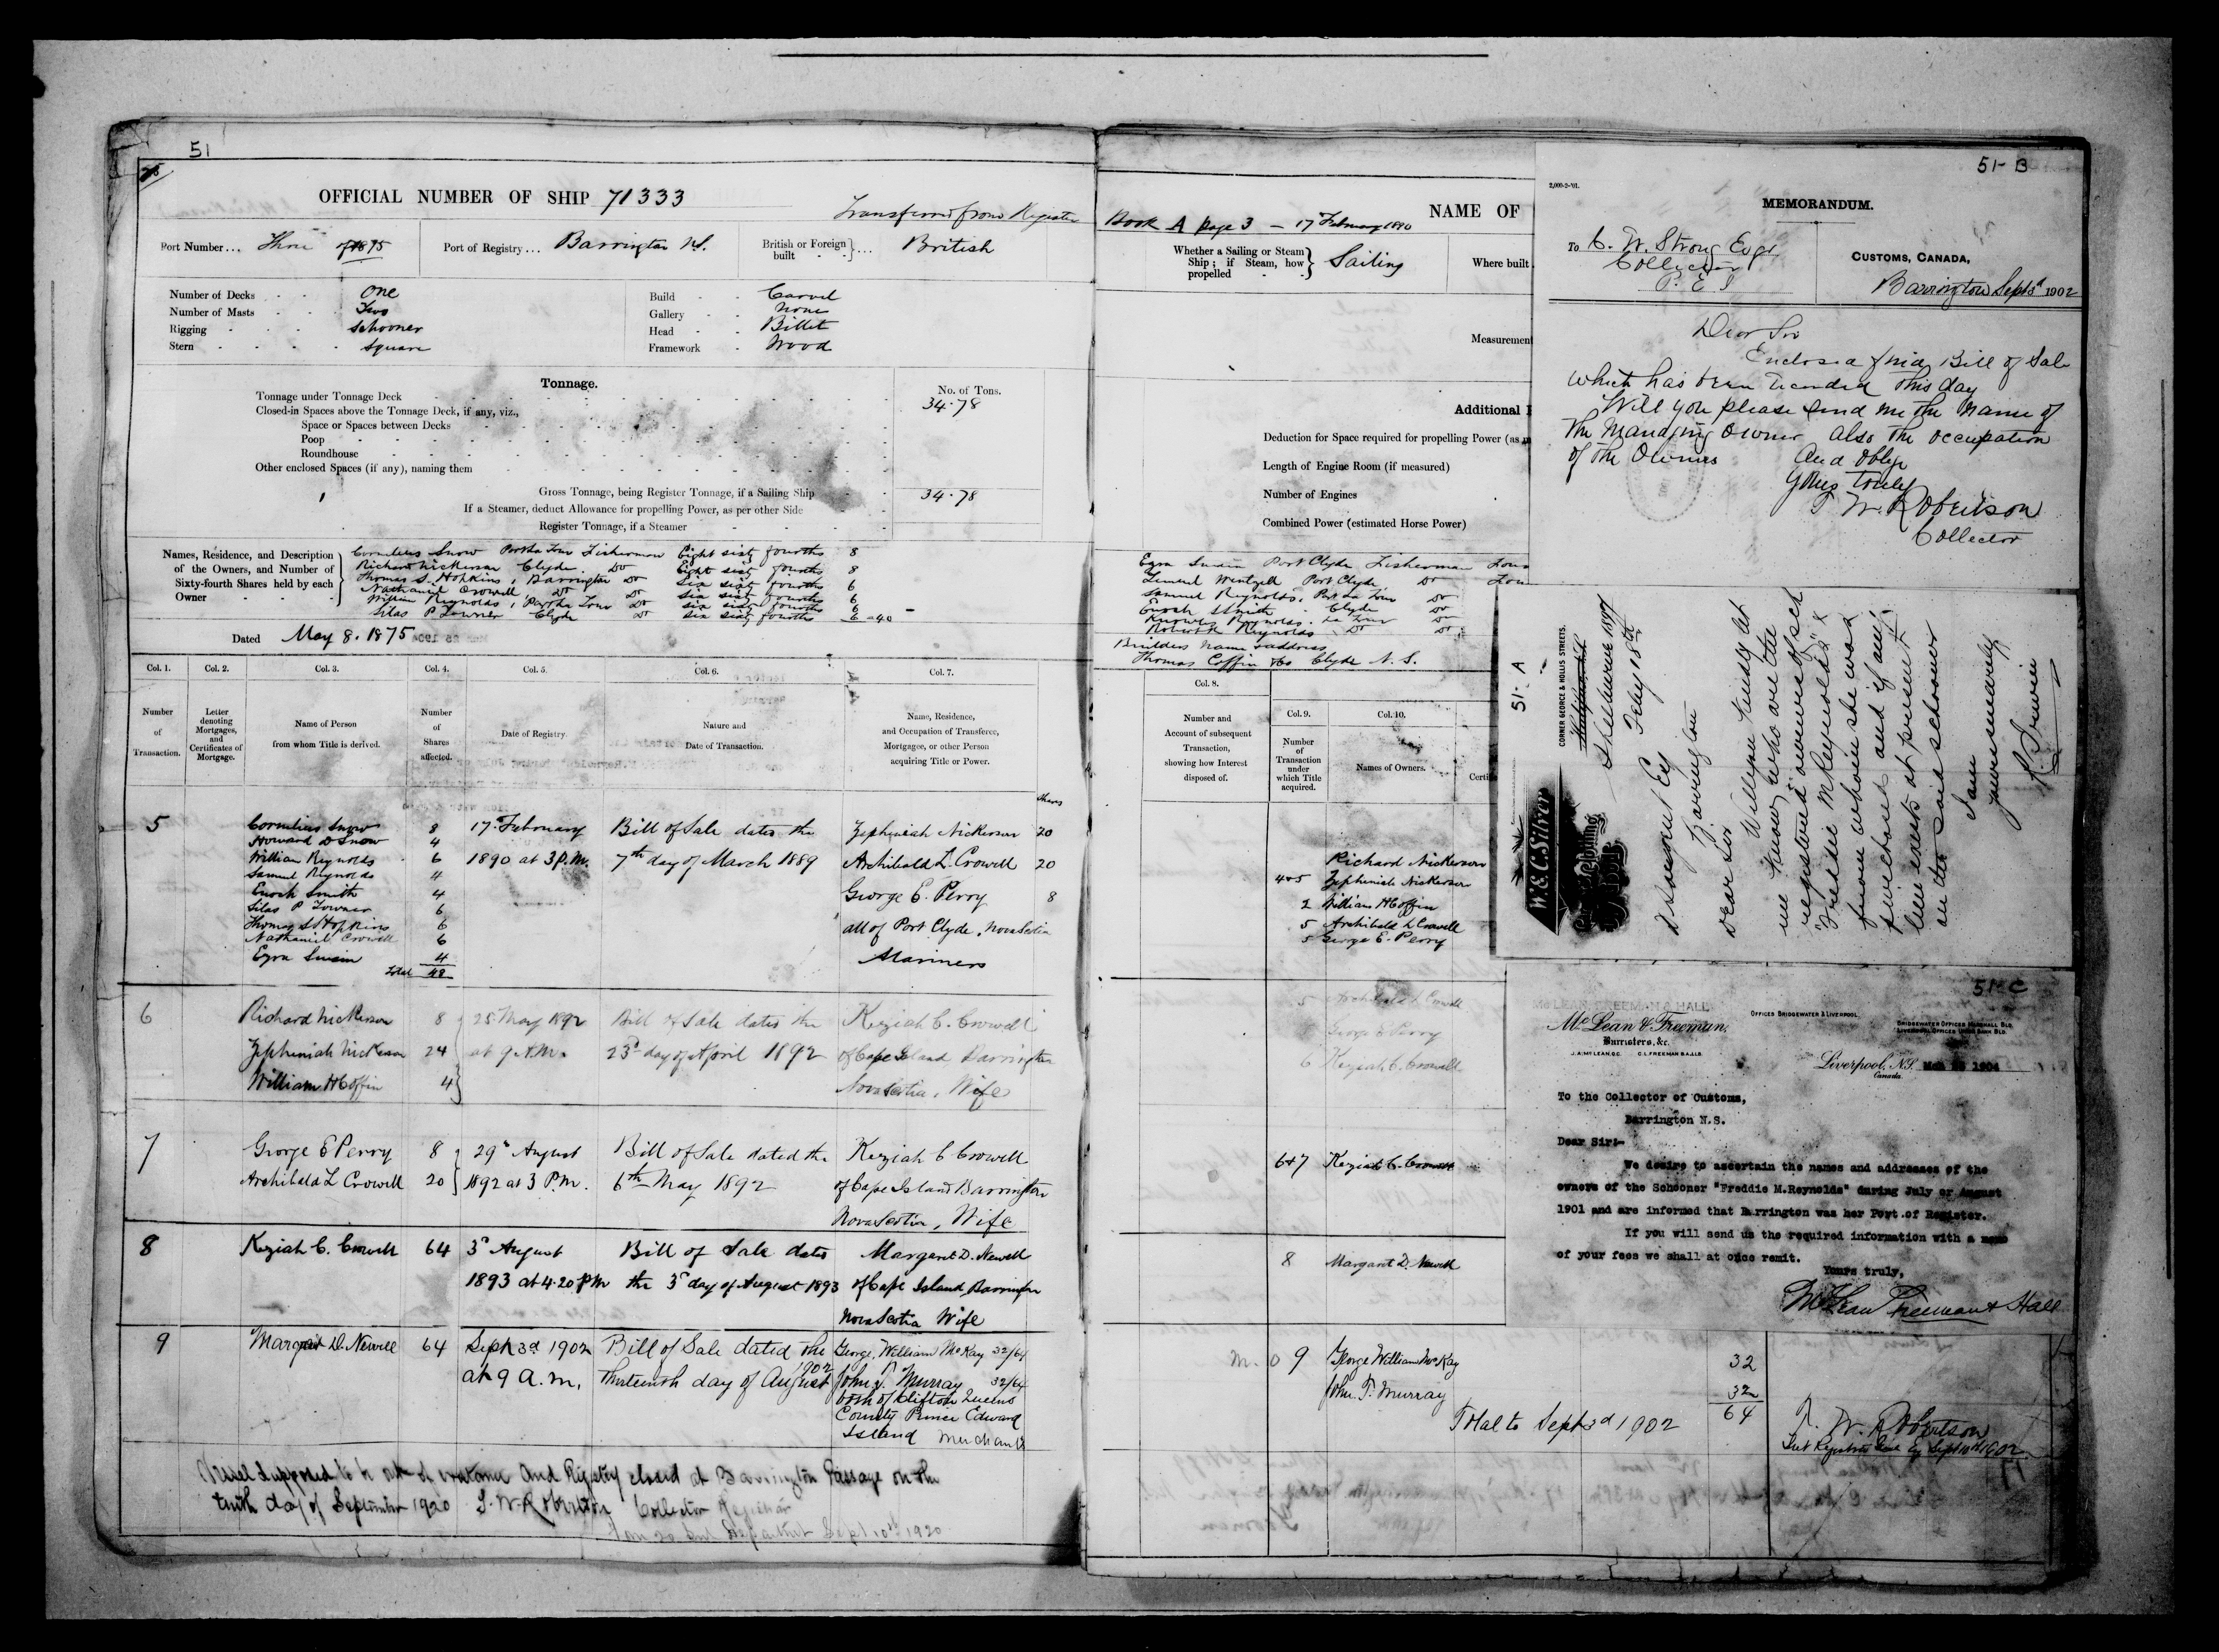 51
OFFICIAL NUMBER OF SHIP 71333
Transferred from Register
Port Number... Three of 1875
Port of Registry... Barrington N.S.
British or Foreign built ... British
Number of Decks One
Number of Masts Two
Rigging Schooner
Stern Square
Build Carvel
Gallery None
Head Billet
Framework Wood
Tonnage.
No. of Tons.
Tonnage under Tonnage Deck 34.78
Closed-in Spaces above the Tonnage Deck, if any, viz.,
Space or Spaces between Decks
Poop
Roundhouse
Other enclosed Spaces (if any), naming them
Gross Tonnage, being Register Tonnage, if a Sailing Ship 34.78
If a Steamer, deduct Allowance for propelling Power, as per other Side
Register Tonnage, if a Steamer
Names, Residence, and Description of the Owners, and Number of Sixty-fourth Shares held by each Owner
Cornelius Snow Port La Tour Fisherman Eight sixty fourths 8
Richard Nickerson Clyde Do Eight sixty fourths 8
Thomas S. Hopkins, Barrington Do Six sixty fourths 6
Nathaniel Crowell, Do Do Six sixty fourths 6
William Reynolds, Port La Tour Do Six sixty fourths 6
Silas P Clyde Do Six sixty fourths 6 = 40
Dated May 8. 1875
Col. 1. Col. 2. Col. 3. Col. 4. Col. 5. Col. 6. Col. 7.
Number of Transaction.
Letter denoting Mortgages, and Certificates of Mortgage.
Name of Person from whom Title is derived.
Number of Shares affected.
Date of Registry.
Nature and Date of Transaction.
Name, Residence, and Occupation of Transferee, Mortgagee, or other Person acquiring Title or Power.
Shares
5 Cornelius Snow 8 17 February Bill of Sale dated the Zepheniah Nickerson 20
Howard D Snow 4
William Reynolds 6 1890 at 3 P.M. 7th day of March 1889 Archibald L. Crowell 20
Samuel Reynolds 4
Enoch Smith 4 George E. Perry 8
Silas P 6
Thomas S Hopkins 6 all of Port Clyde, Nova Scotia
Nathaniel Crowell 6
Ezra Swain 4 Mariners
Total 48
6 Richard Nickerson 8 25 May 1892 Bill of Sale dated the Keziah C. Crowell
Zepheniah Nickerson 24 at 9 A.M. 23rd day of April 1892 of Cape Island Barrington
William H Coffin 4 Nova Scotia, Wife
7 George E Perry 8 29th August Bill of Sale dated the Keziah C Crowell
Archibald L Crowell 20 1892 at 3 P.M. 6th May 1892 of Cape Island Barrington
Nova Scotia, Wife
8 Keziah C. Crowell 64 3rd August Bill of Sale dated Margaret D. Newell
1893 at 4.20 PM the 3rd day of August 1893 of Cape Island, Barrington
Nova Scotia Wife
9 Margaret D. Newell 64 Sept 3rd 1902 Bill of Sale dated the George William McKay 32/64
at 9 a.m. thirteenth day of August 1902 John T. Murray 32/64
both of Clifton Queens
County Prince Edward
Island Merchants
Vessel supposed to be out of existence and Registry closed at Barrington Passage on the
tenth day of September 1920 T. W. Robertson Collector Registrar
Sept 10th 1920
Book A Page 3 — 17 February 1890
NAME OF
Whether a Sailing or Steam Ship; if Steam, how propelled Sailing
Where built
Measurement
Additional
Deduction for Space required for propelling Power (as
Length of Engine Room (if measured)
Number of Engines
Combined Power (estimated Horse Power)
Ezra Swain Port Clyde Fisherman
Lemuel Wentzell Port Clyde Do
Samuel Reynolds, Port La Tour Do
Enoch Smith Clyde Do
Knowles Reynolds. La Tour Do
Robert Reynolds Do Do
Builders Name & address
Thomas Coffin & Co Clyde N.S.
Col. 8.
Col. 9. Col. 10.
Number and Account of subsequent Transaction, showing how Interest disposed of.
Number of Transaction under which Title acquired.
Names of Owners.
Richard Nickerson
4+5 Zepheniah Nickerson
2 William H Coffin
5 Archibald L Crowell
5 George E. Perry
5 Archibald L Crowell
George E Perry
6 Keziah C. Crowell
6+7 Keziah C. Crowell
8 Margaret D. Newell
M. O 9 George William McKay 32
John T. Murray 32
Total to Sept 3rd 1902 64
T. W. Robertson
51-B
MEMORANDUM.
To C. W. Strong Esqr
Collector
P. E. I
CUSTOMS, CANADA,
Barrington Sept 3d 1902
Dear Sir
Enclosed find Bill of Sale
which has been recorded this day
Will you please send me the name of
the Managing Owner also the occupation
of the Owners And oblige
Yours truly
T. W. Robertson
Collector
51-A
CORNER GEORGE & HOLLIS STREETS.
W. & C. Silver
Shelburne 1897
Feby 18th
D Sargent Esq
Barrington
Dear Sir
Will you kindly let
me know who are the
registered owners of sch
"Freddie M Reynolds" &
from whom she was
purchased and if any
lien exists at present
on the said schooner
I am
yours sincerely
R. Irwin
51-C
McLEAN, FREEMAN & HALL
McLean & Freeman,
Barristers, &c.
J. A. McLEAN, Q.C. C. L. FREEMAN B.A., LL.B.
OFFICES BRIDGEWATER & LIVERPOOL
BRIDGEWATER OFFICES MARSHALL BLD.
Liverpool, N.S. 1904
Canada.
To the Collector of Customs,
Barrington N.S.
Dear Sir:-
We desire to ascertain the names and addresses of the
owners of the Schooner "Freddie M.Reynolds" during July or August
1901 and are informed that Barrington was her Port of Register.
If you will send us the required information with a memo
of your fees we shall at once remit.
Yours truly,
McLean Freeman & Hall